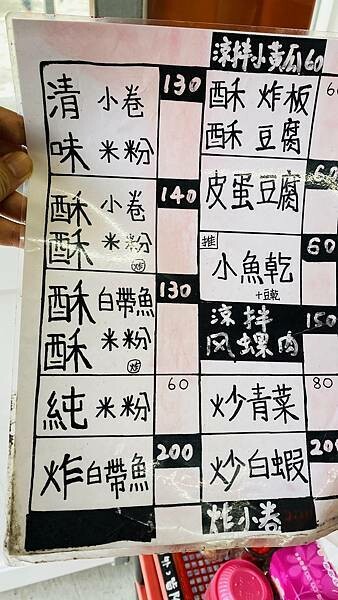 清 小卷
味 米粉
130
酥 小卷
酥 米粉
炸
140
酥 白帶魚
酥 米粉
炸
130
純 米粉
60
炸 白帶魚
200
涼拌小黃瓜60
酥 炸板
酥 豆腐
皮蛋豆腐
60
推
小魚乾
+豆乾
60
涼拌
风螺肉
150
炒青菜
80
炒白蝦
炸小卷